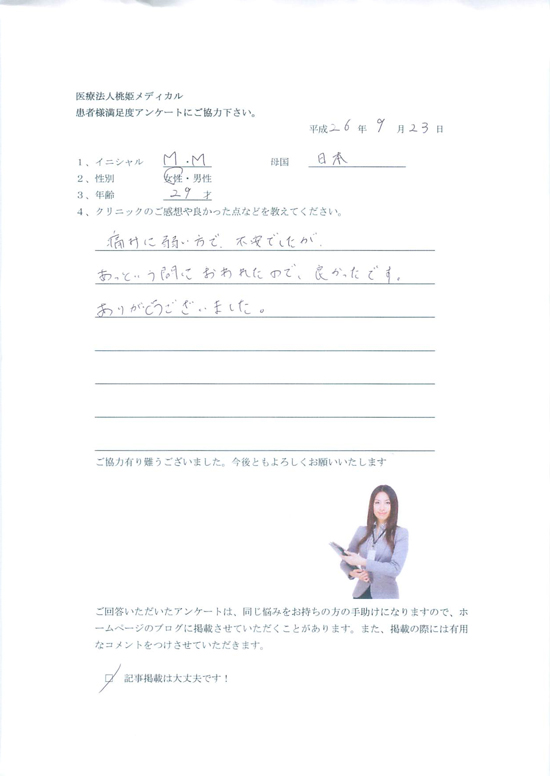 医療法人桃姫メディカル
患者様満足度アンケートにご協力下さい。
平成26年 9月23日
1、イニシャル M.M 母国 日本
2、性別 女性・男性
3、年齢 29才
4、クリニックのご感想や良かった点などを教えてください。
痛みに弱い方で、不安でしたが、
あっという間におわれたので、良かったです。
ありがとうございました。
ご協力有り難うございました。今後ともよろしくお願いいたします
ご回答いただいたアンケートは、同じ悩みをお持ちの方の手助けになりますので、ホ
ームページのブログに掲載させていただくことがあります。また、掲載の際には有用
なコメントをつけさせていただきます。
□ 記事掲載は大丈夫です！